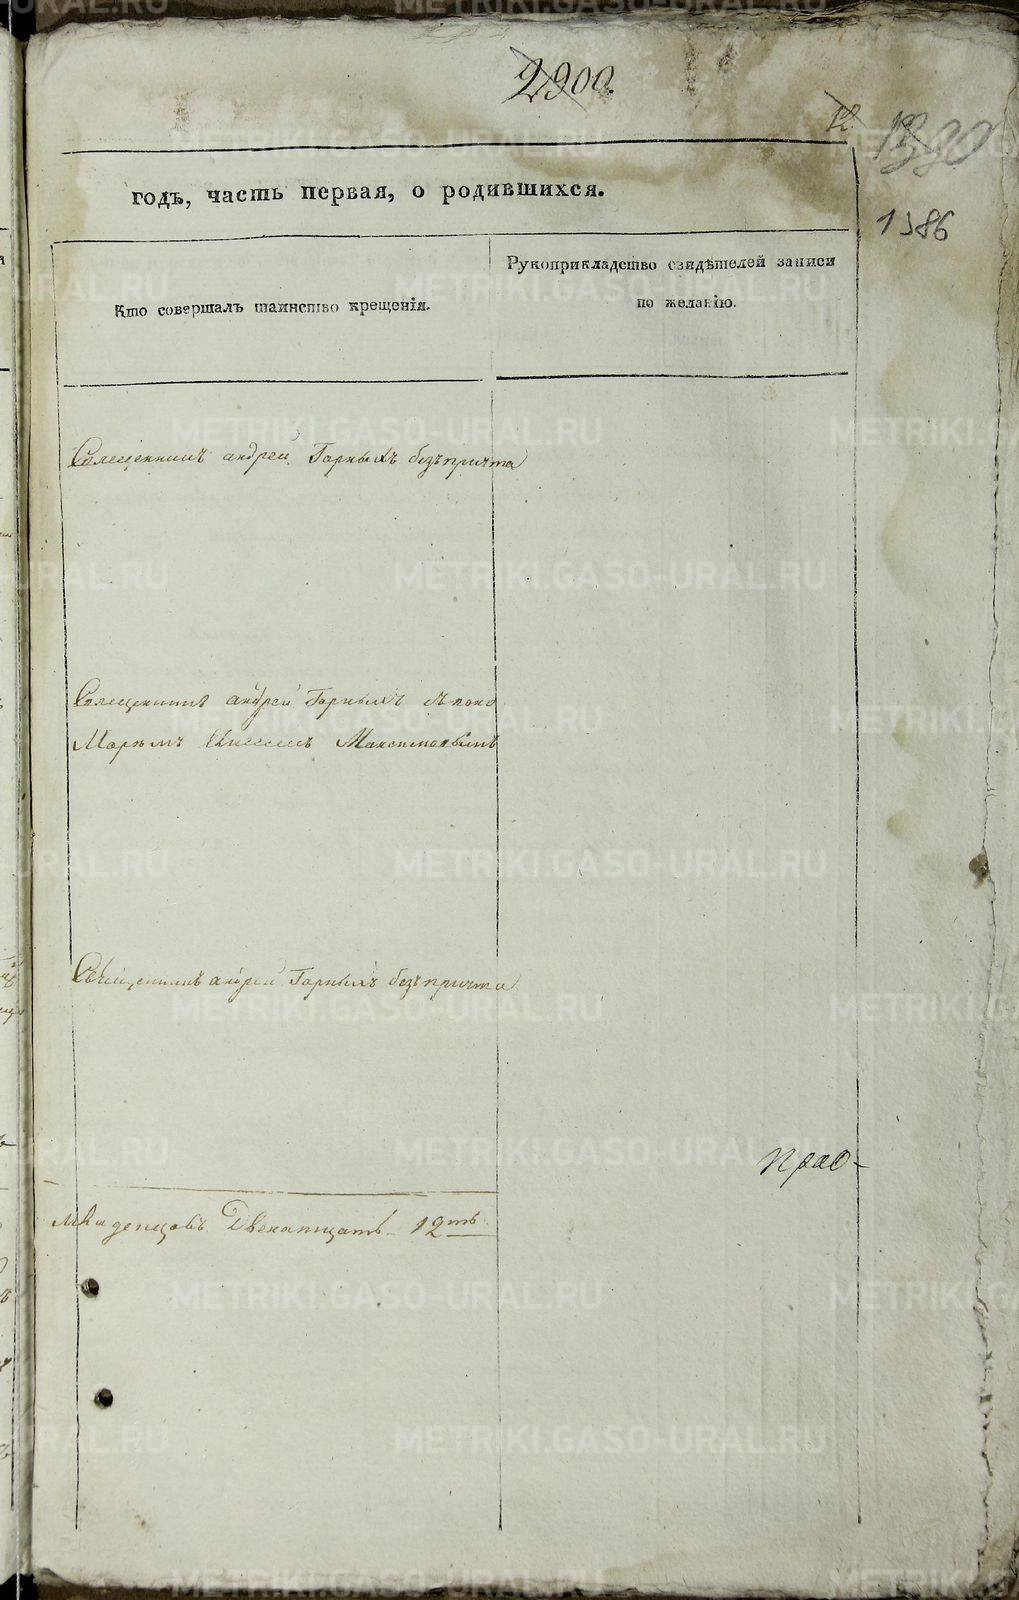 2900.
12
1386
годъ, часть первая, о родившихся.
Кто совершалъ таинство крещенія.
Рукоприкладство свидѣтелей записи
по желанію.
Священникъ андрей Горныхъ безъпричта
Священникъ андрей Горныхъ съ поно
Маремъ Максимовымъ
Священникъ андрей Горныхъ безъпричта
Младенцовъ Двенатцать 12ть
METRIKI.GASO-URAL.RU